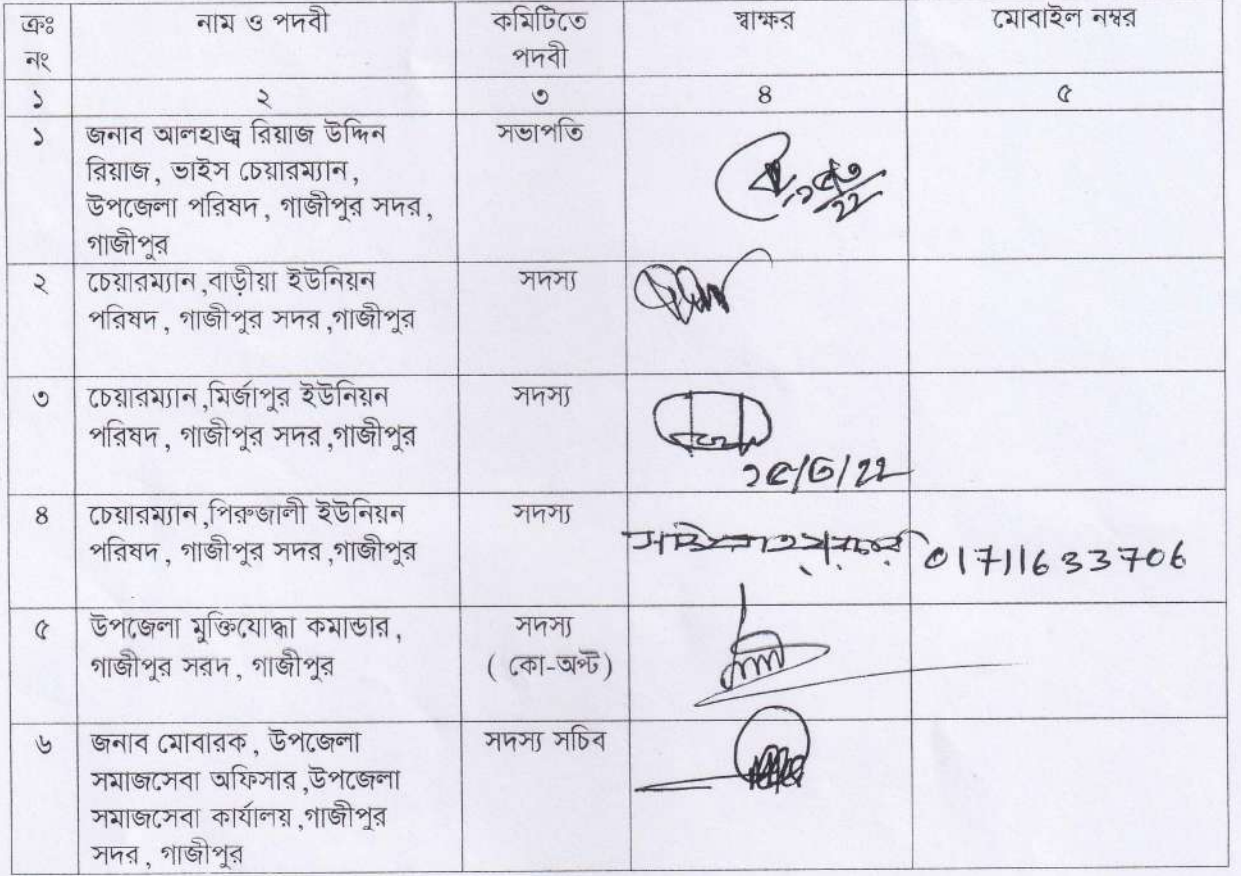 ক্রঃ নং নাম ও পদবী কমিটিতে পদবী স্বাক্ষর মোবাইল নম্বর
১ ২ ৩ ৪ ৫
১ জনাব আলহাজ্ব রিয়াজ উদ্দিন সভাপতি
রিয়াজ, ভাইস চেয়ারম্যান,
উপজেলা পরিষদ, গাজীপুর সদর,
গাজীপুর
২ চেয়ারম্যান,বাড়ীয়া ইউনিয়ন সদস্য
পরিষদ, গাজীপুর সদর,গাজীপুর
৩ চেয়ারম্যান,মির্জাপুর ইউনিয়ন সদস্য
পরিষদ, গাজীপুর সদর,গাজীপুর
১৫/৩/২২
৪ চেয়ারম্যান,পিরুজালী ইউনিয়ন সদস্য
পরিষদ, গাজীপুর সদর,গাজীপুর
01711633706
৫ উপজেলা মুক্তিযোদ্ধা কমান্ডার, সদস্য
গাজীপুর সরদ, গাজীপুর ( কো-অপ্ট)
৬ জনাব মোবারক, উপজেলা সদস্য সচিব
সমাজসেবা অফিসার,উপজেলা
সমাজসেবা কার্যালয়,গাজীপুর
সদর, গাজীপুর